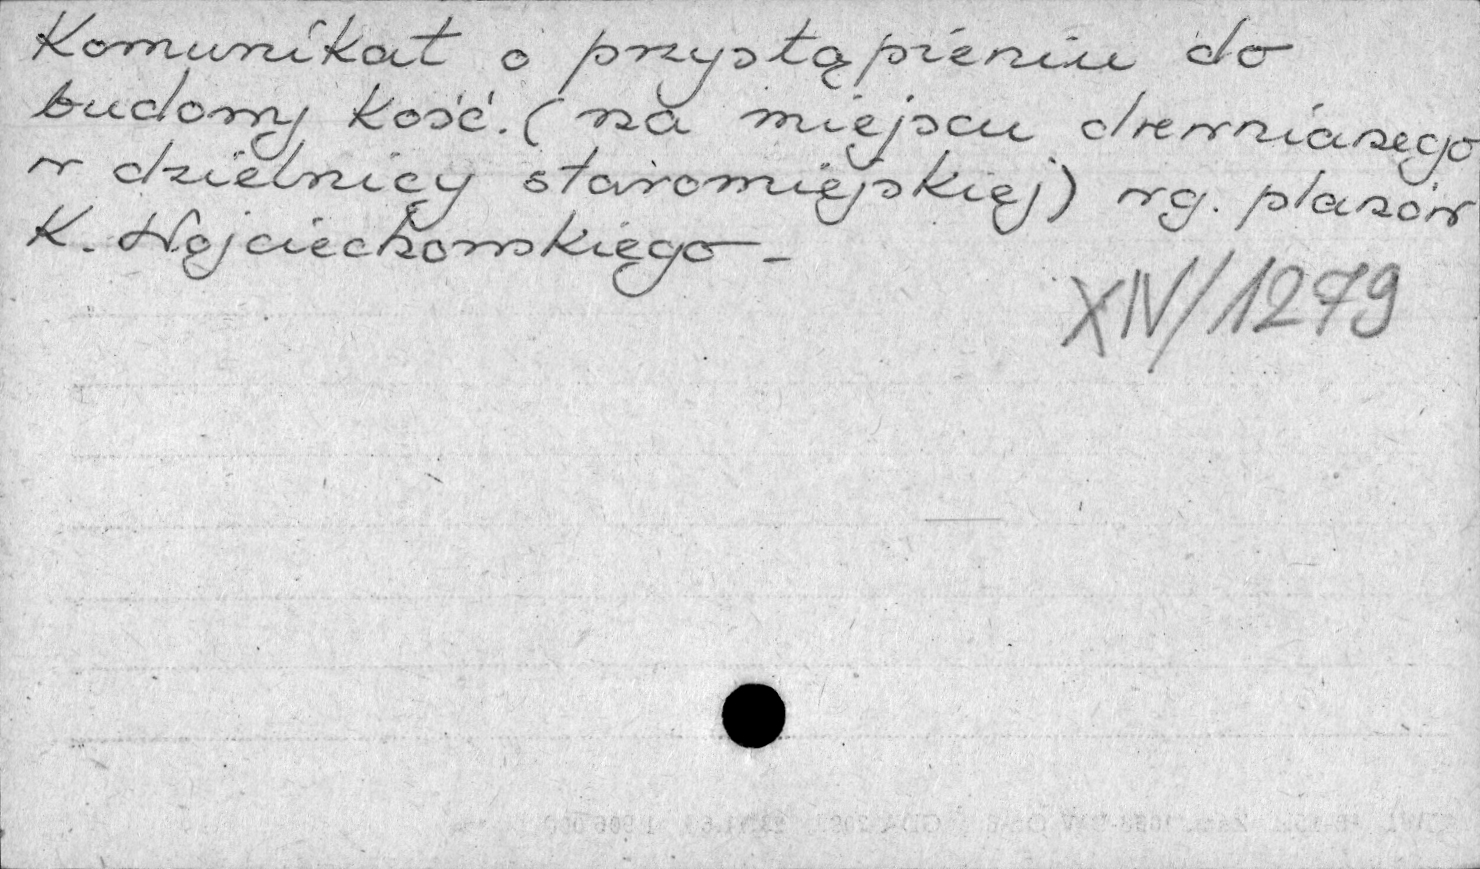 Komunikat o przystąpieniu do
budowy Kość. (na miejscu drewnianego
w dzielnicy staromiejskiej) wg. planów
K. Wojciechowskiego -
XIV/1279